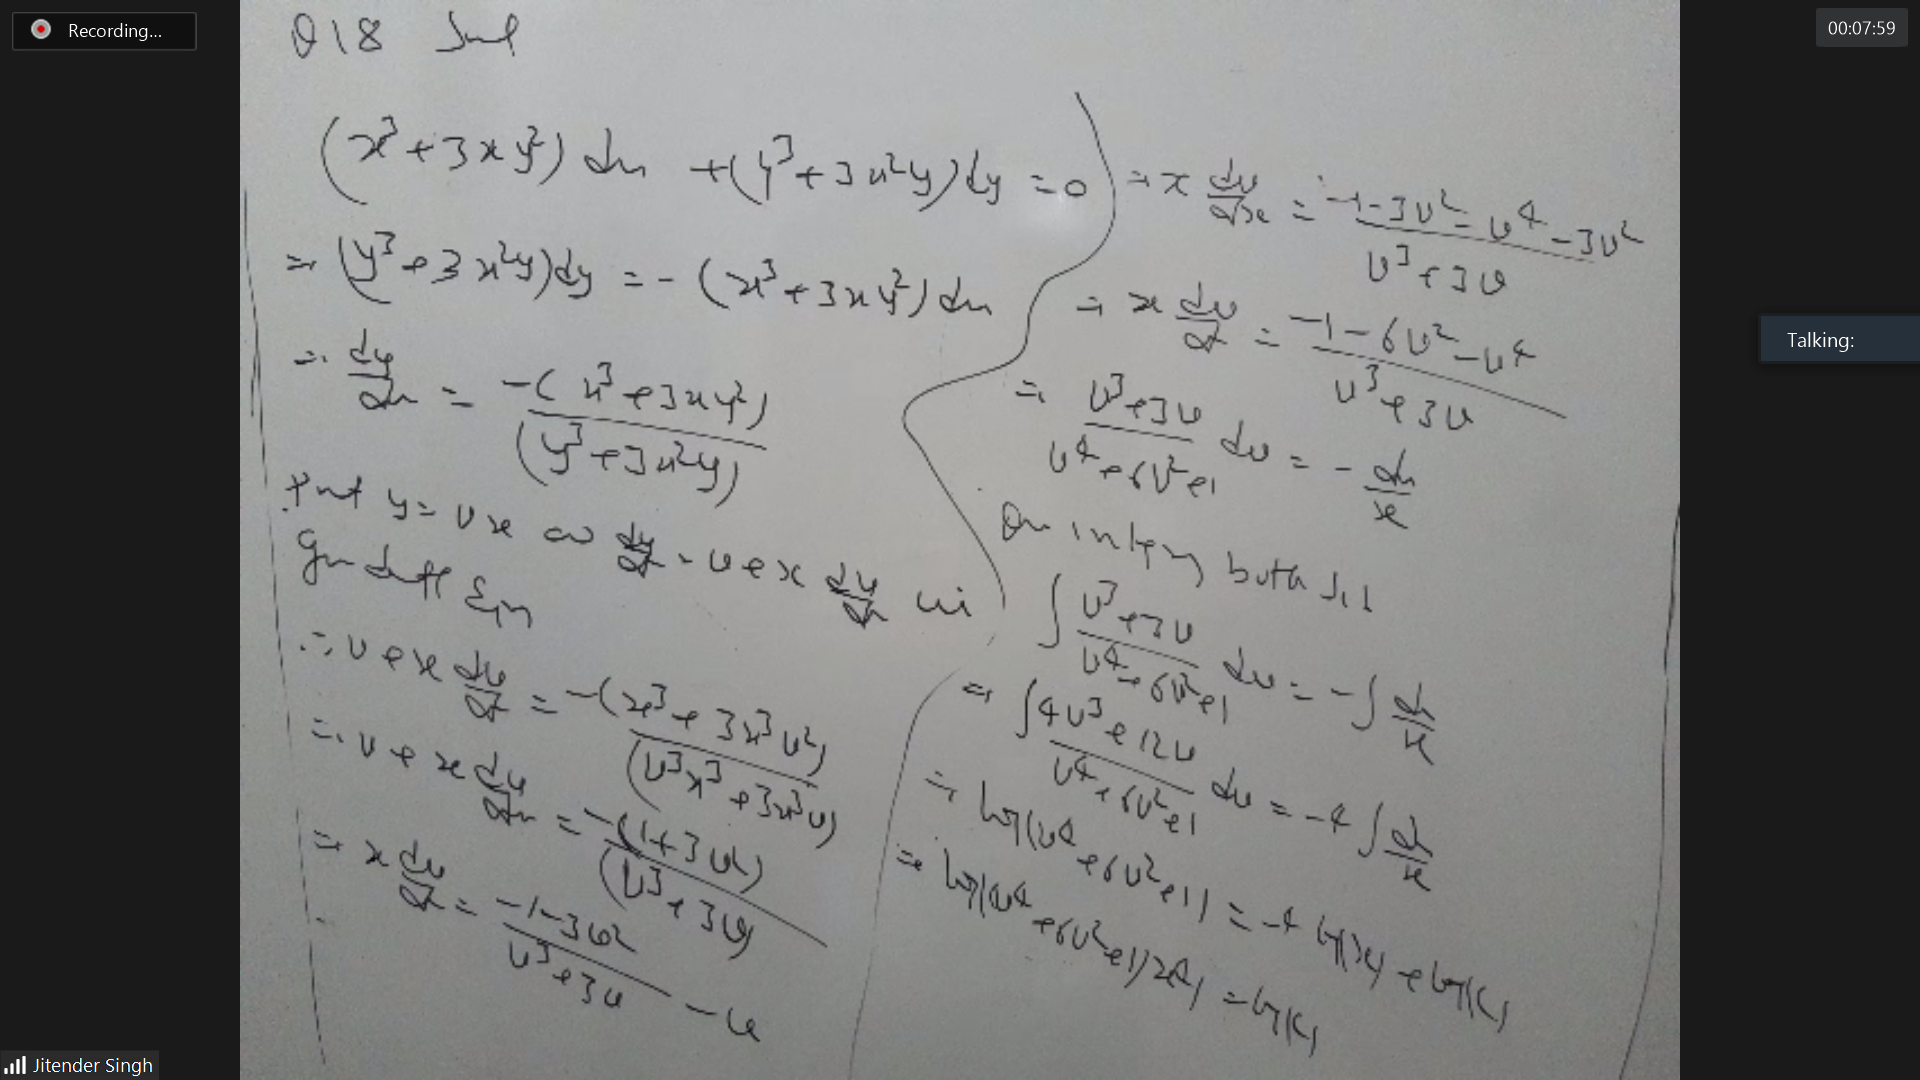 Recording...
00:07:59
Q18 Sol
(x³+3xy²) dx + (y³+3x²y)dy = 0
⇒ (y³+3x²y)dy = - (x³+3xy²) dx
⇒ dy/dx = -(x³+3xy²)/(y³+3x²y)
Put y = vx dy/dx = v+x dv/dx in
diff Eqn
∴ v+x dv/dx = -(x³+3x³v²)/(v³x³+3x³v)
⇒ v+x dv/dx = -(1+3v²)/(v³+3v)
⇒ x dv/dx = (-1-3v²)/(v³+3v) - v
⇒ x dv/dx = (-1-3v²-v⁴-3v²)/(v³+3v)
⇒ x dv/dx = (-1-6v²-v⁴)/(v³+3v)
⇒ (v³+3v)/(v⁴+6v²+1) dv = - dx/x
On integ both
∫ (v³+3v)/(v⁴+6v²+1) dv = -∫ dx/x
⇒ ∫ (4v³+12v)/(v⁴+6v²+1) dv = -4 ∫ dx/x
⇒ log|v⁴+6v²+1| = -4 log|x| + log|c|
⇒ log|(v⁴+6v²+1)x⁴| = log|c|
Talking:
Jitender Singh